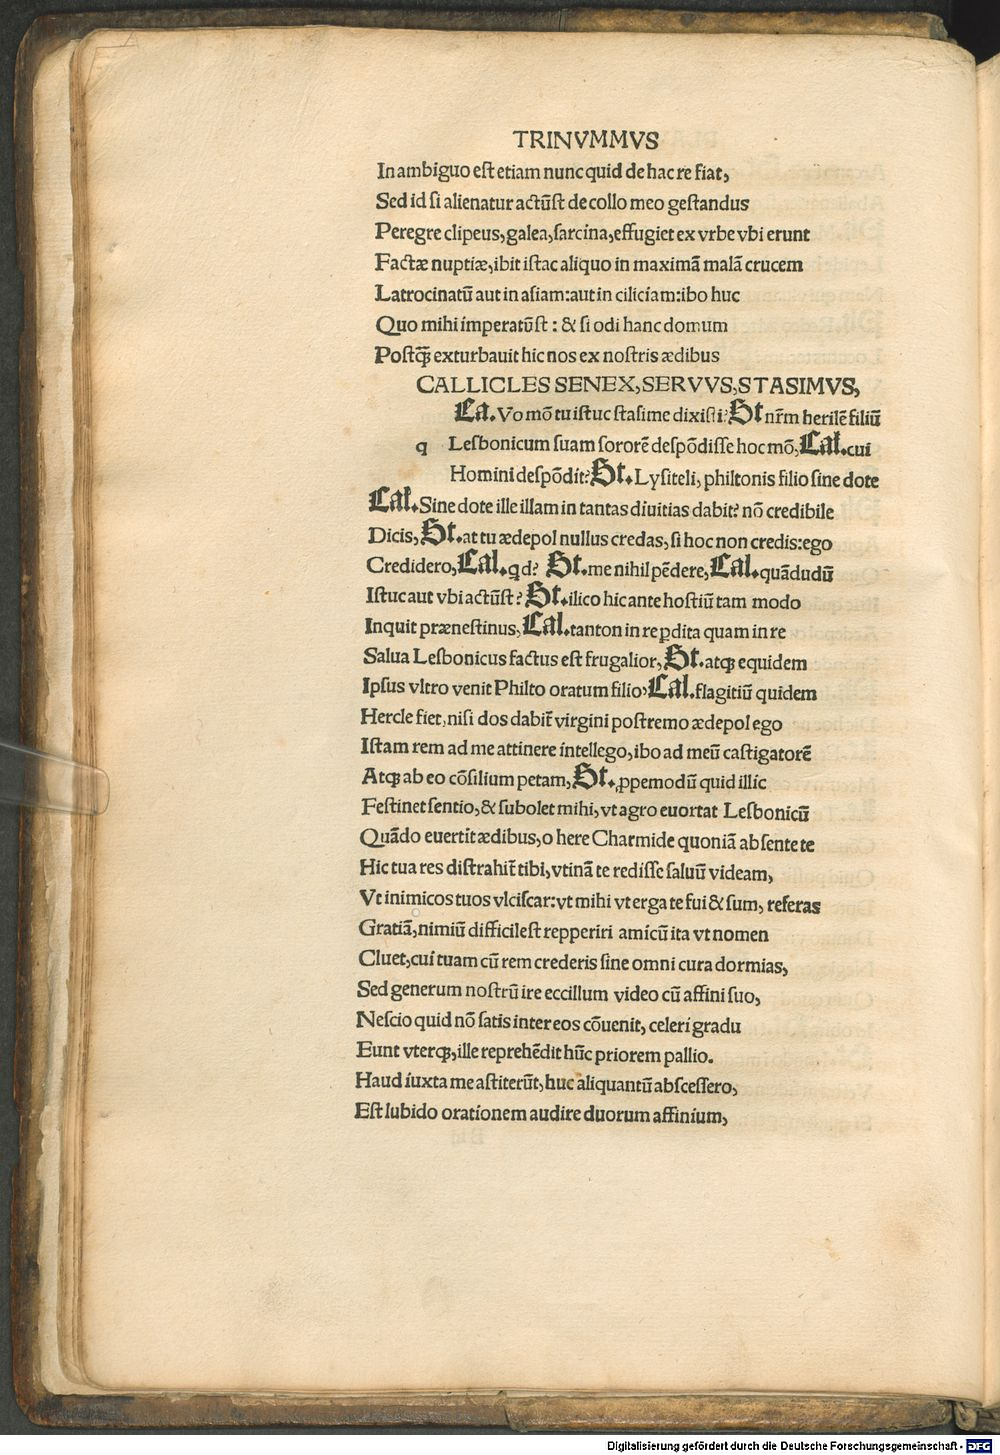 TRINVMMVS
In ambiguo est etiam nunc quid de hac re fiat,
Sed id si alienatur actūst de collo meo gestandus
Peregre clipeus,galea,sarcina,effugiet ex vrbe vbi erunt
Factæ nuptiæ,ibit istac aliquo in maximā malā crucem
Latrocinatū aut in asiam:aut in ciliciam:ibo huc
Quo mihi imperatūst : & si odi hanc domum
Postꝗ̃ exturbauit hic nos ex nostris ædibus
CALLICLES SENEX,SERVVS,STASIMVS,
Ca. Vo mō tu istuc stasime dixisti? St nr̄m herilē filiū
q Lesbonicum suam sororē despōdisse hoc mō, Cal. cui
Homini despōdit? St. Lysiteli, philtonis filio sine dote
Cal. Sine dote ille illam in tantas diuitias dabit? nō credibile
Dicis, St. at tu ædepol nullus credas, si hoc non credis:ego
Credidero, Cal. qd? St. me nihil pēdere, Cal. quādudū
Istuc aut vbi actūst? St. ilico hic ante hostiū tam modo
Inquit prænestinus, Cal. tanton in re ꝑdita quam in re
Salua Lesbonicus factus est frugalior, St. atqꝫ equidem
Ipsus vltro venit Philto oratum filio, Cal. flagitiū quidem
Hercle fiet, nisi dos dabit̄ virgini postremo ædepol ego
Istam rem ad me attinere intellego,ibo ad meū castigatorē
Atqꝫ ab eo cōsilium petam, St. ꝓpemodū quid illic
Festinet sentio,& subolet mihi, vt agro euortat Lesbonicū
Quādo euertit ædibus,o here Charmide quoniā absente te
Hic tua res distrahit̄ tibi, vtinā te redisse saluū videam,
Vt inimicos tuos vlciscar:vt mihi vt erga te fui & sum, referas
Gratiā,nimiū difficilest repperiri amicū ita vt nomen
Cluet,cui tuam cū rem crederis sine omni cura dormias,
Sed generum nostrū ire eccillum video cū affini suo,
Nescio quid nō satis inter eos cōuenit, celeri gradu
Eunt vterqꝫ,ille reprehēdit hūc priorem pallio.
Haud iuxta me astiterūt, huc aliquantū abscessero,
Est lubido orationem audire duorum affinium,
Digitalisierung gefördert durch die Deutsche Forschungsgemeinschaft - DFG